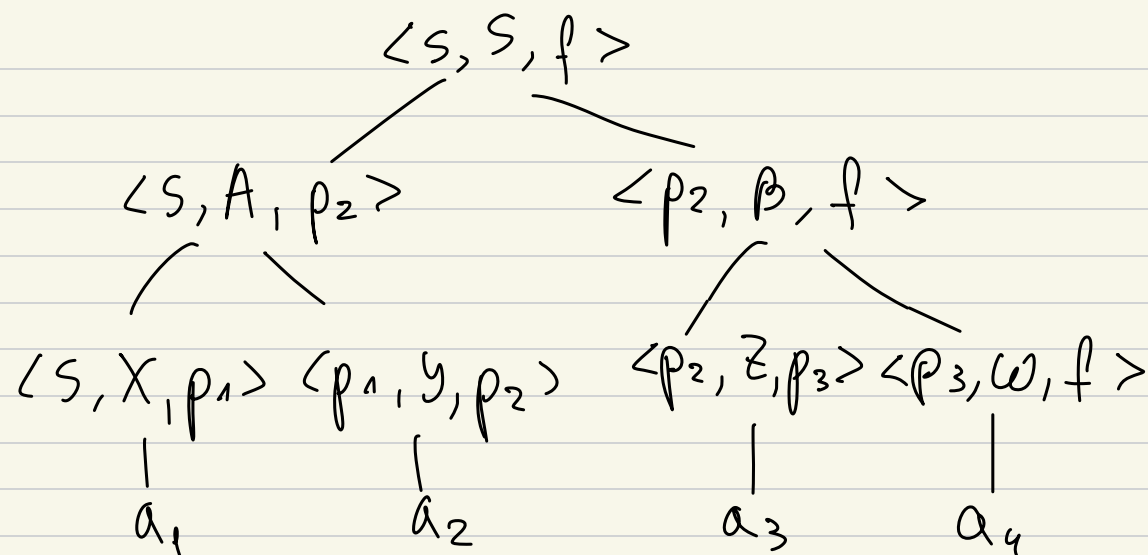 <s, S, f>
<s, A, p₂> <p₂, B, f>
<s, X, p₁> <p₁, y, p₂> <p₂, Z, p₃> <p₃, ω, f>
a₁ a₂ a₃ a₄